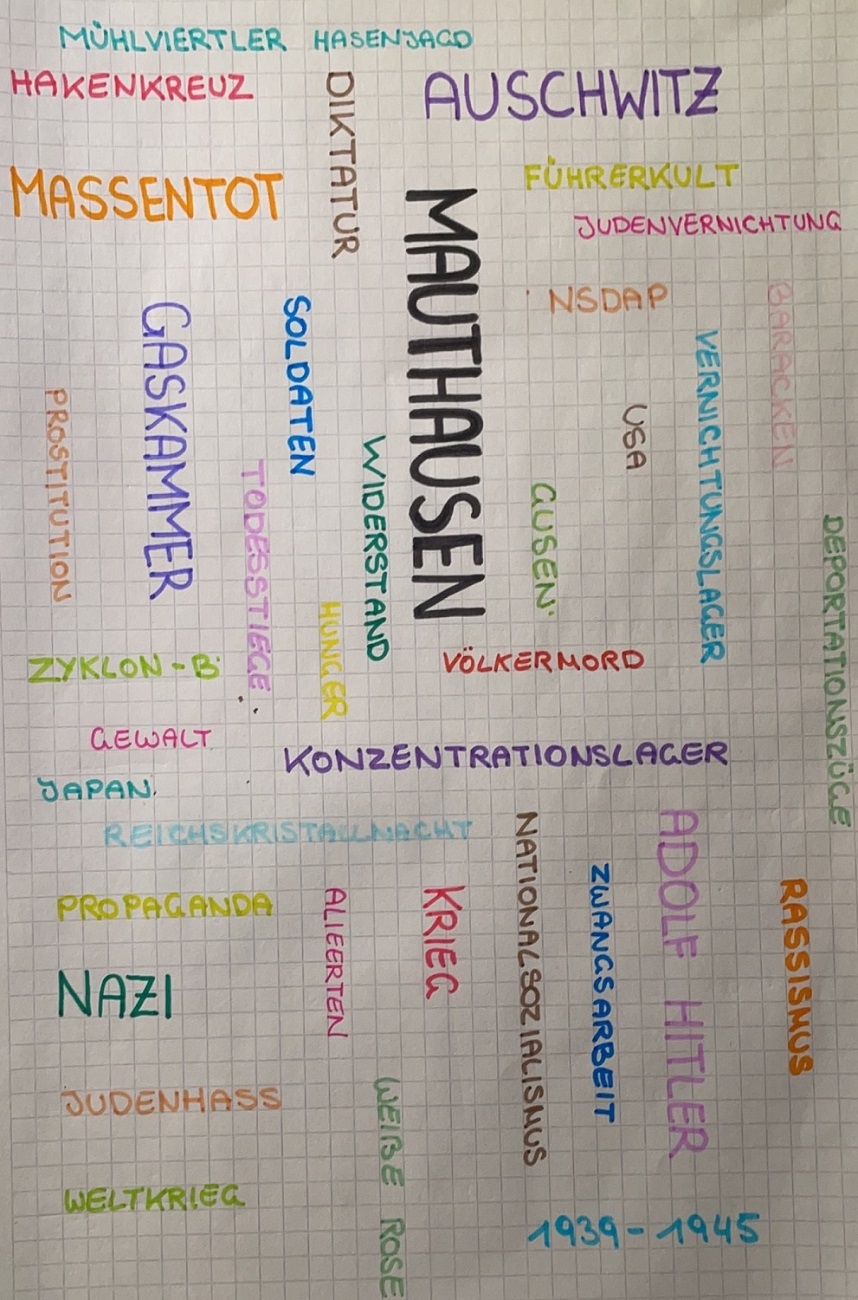 MÜHLVIERTLER HASENJAGD
HAKENKREUZ
DIKTATUR
AUSCHWITZ
MASSENTOT
FÜHRERKULT
JUDENVERNICHTUNG
MAUTHAUSEN
NSDAP
BARACKEN
GASKAMMER
SOLDATEN
VERNICHTUNGSLAGER
PROSTITUTION
USA
WIDERSTAND
TODESSTIEGE
GUSEN
DEPORTATIONSZÜGE
HUNGER
ZYKLON-B
VÖLKERMORD
GEWALT
KONZENTRATIONSLAGER
JAPAN
REICHSKRISTALLNACHT
NATIONALSOZIALISMUS
ADOLF HITLER
ZWANGSARBEIT
RASSISMUS
PROPAGANDA
ALIEERTEN
KRIEG
NAZI
JUDENHASS
WEIßE ROSE
WELTKRIEG
1939-1945